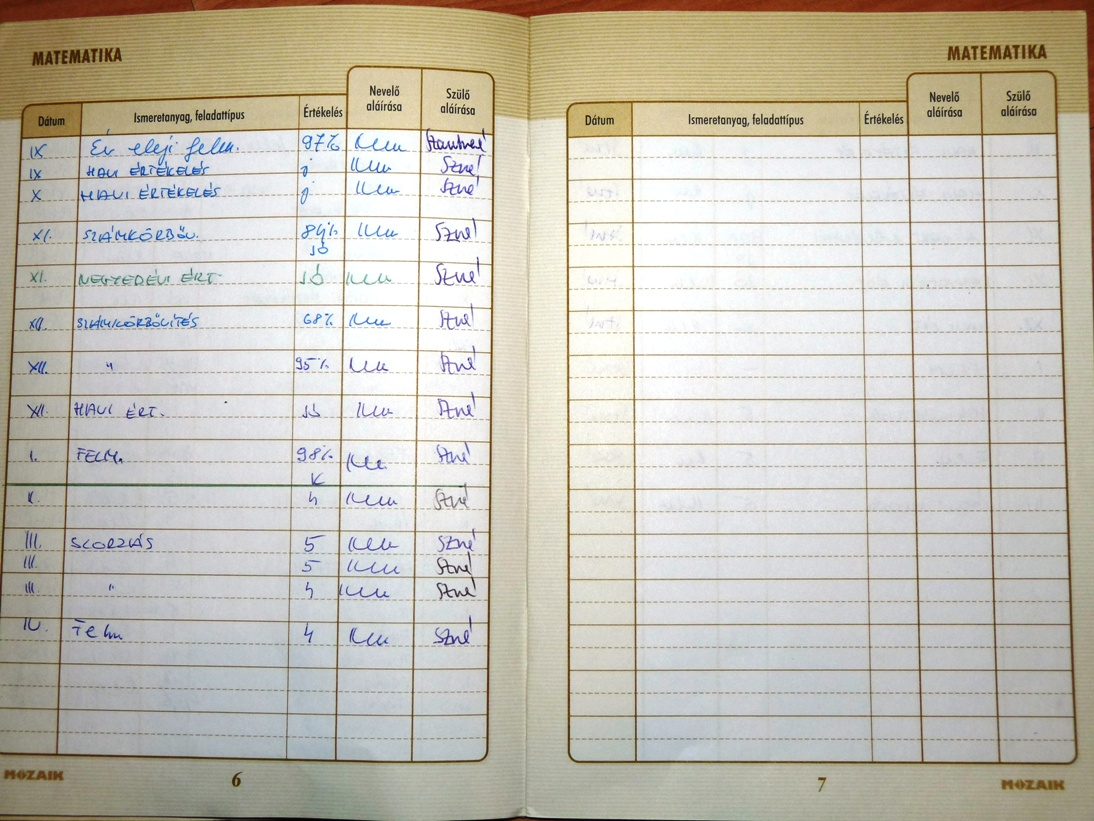 MATEMATIKA
Dátum Ismeretanyag, feladattípus Értékelés Nevelő aláírása Szülő aláírása
IX Év eleji felm. 97%
IX HAVI ÉRTÉKELÉS j Szné
X HAVI ÉRTÉKELÉS j Szné
XI. SZÁMKÖRBŐV. 84% Szné
JÓ
XI. NEGYEDÉVI ÉRT. JÓ Szné
XII. SZÁMKÖRBŐVÍTÉS 68% Szné
XII. " 95% Szné
XII. HAVI ÉRT. JÓ Szné
I. FELM. 98% Szné
K
II. 4 Szné
III. SZORZÁS 5 Szné
III. 5 Szné
III " 4 Szné
IV. Felm 4 Szné
MOZAIK
6
MATEMATIKA
Dátum Ismeretanyag, feladattípus Értékelés Nevelő aláírása Szülő aláírása
7
MOZAIK